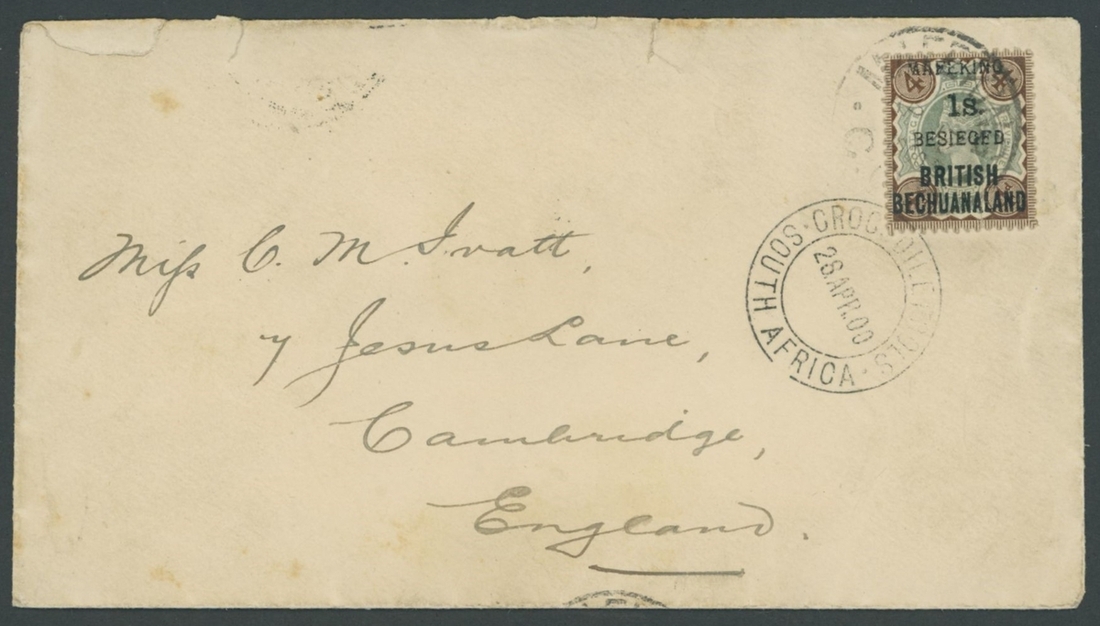 MAFEKING
1s.
BESIEGED
BRITISH
BECHUANALAND
4
CROCODILE POOLS · SOUTH AFRICA ·
28.APR.00
Miſs C. M. Ivatt,
7 Jesus Lane,
Cambridge,
England.